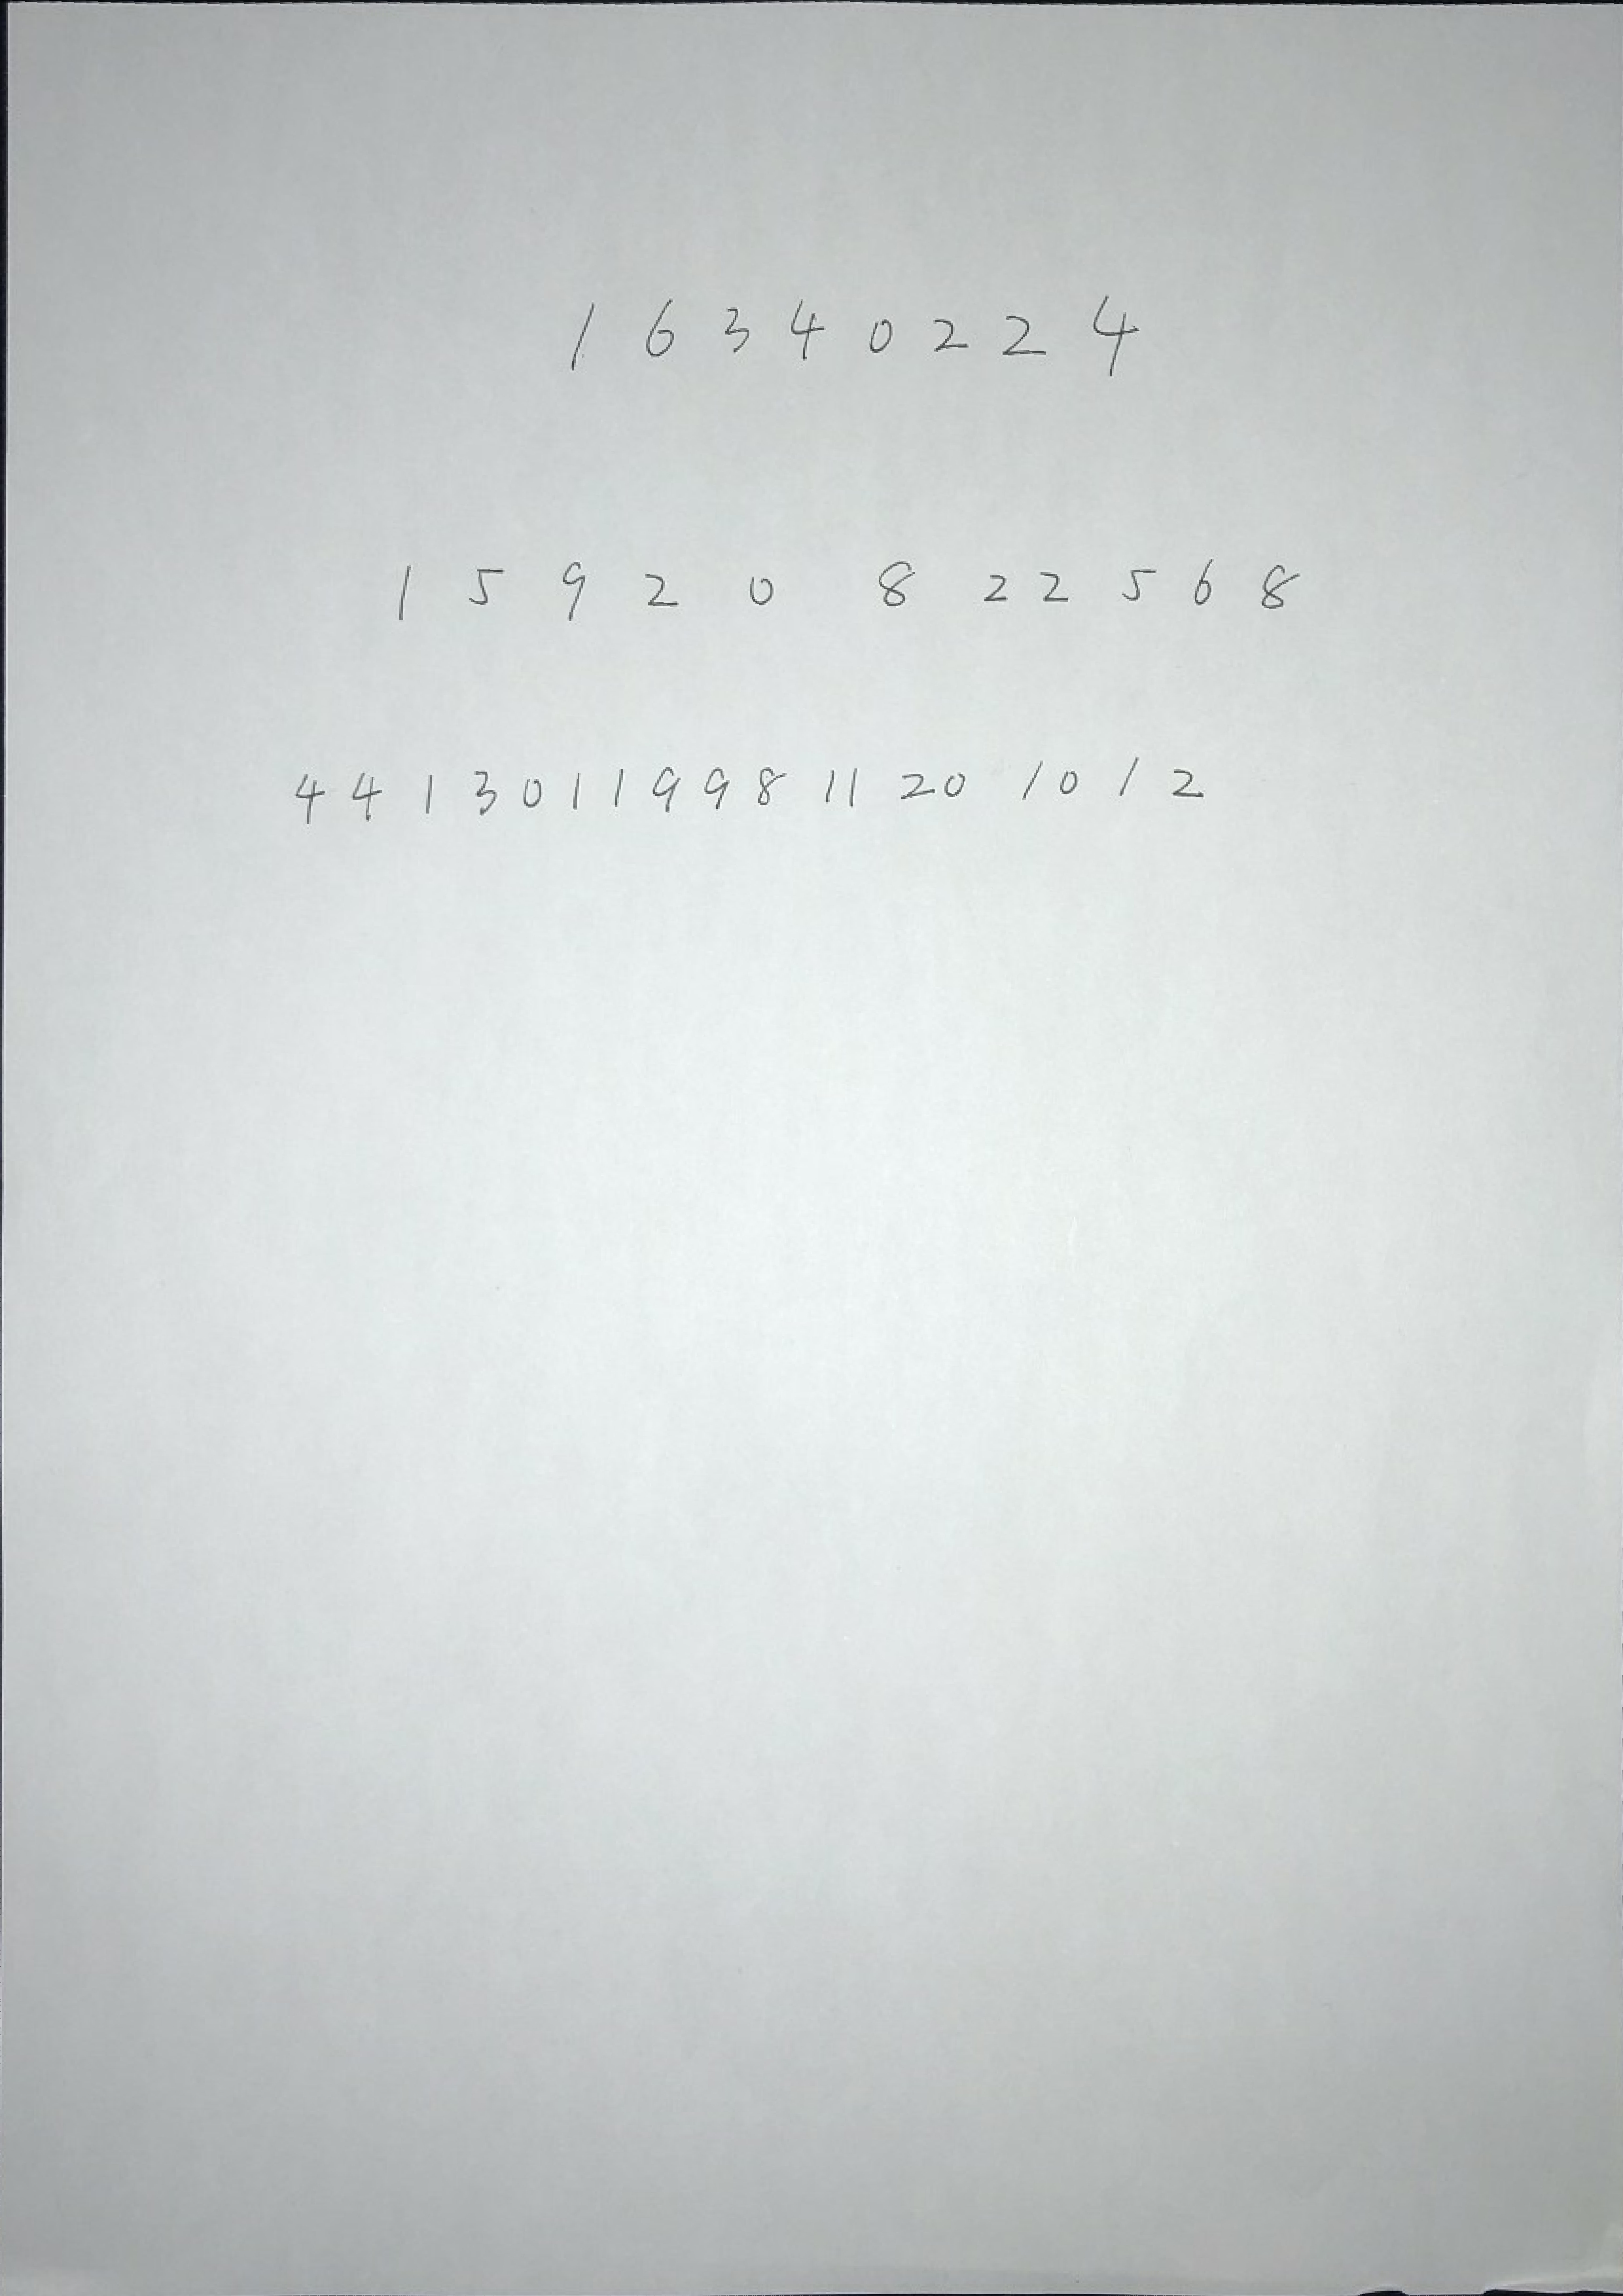 1 6 3 4 0 2 2 4
1 5 9 2 0 8 2 2 5 6 8
4 4 1 3 0 1 1 9 9 8 1 1 2 0 1 0 1 2